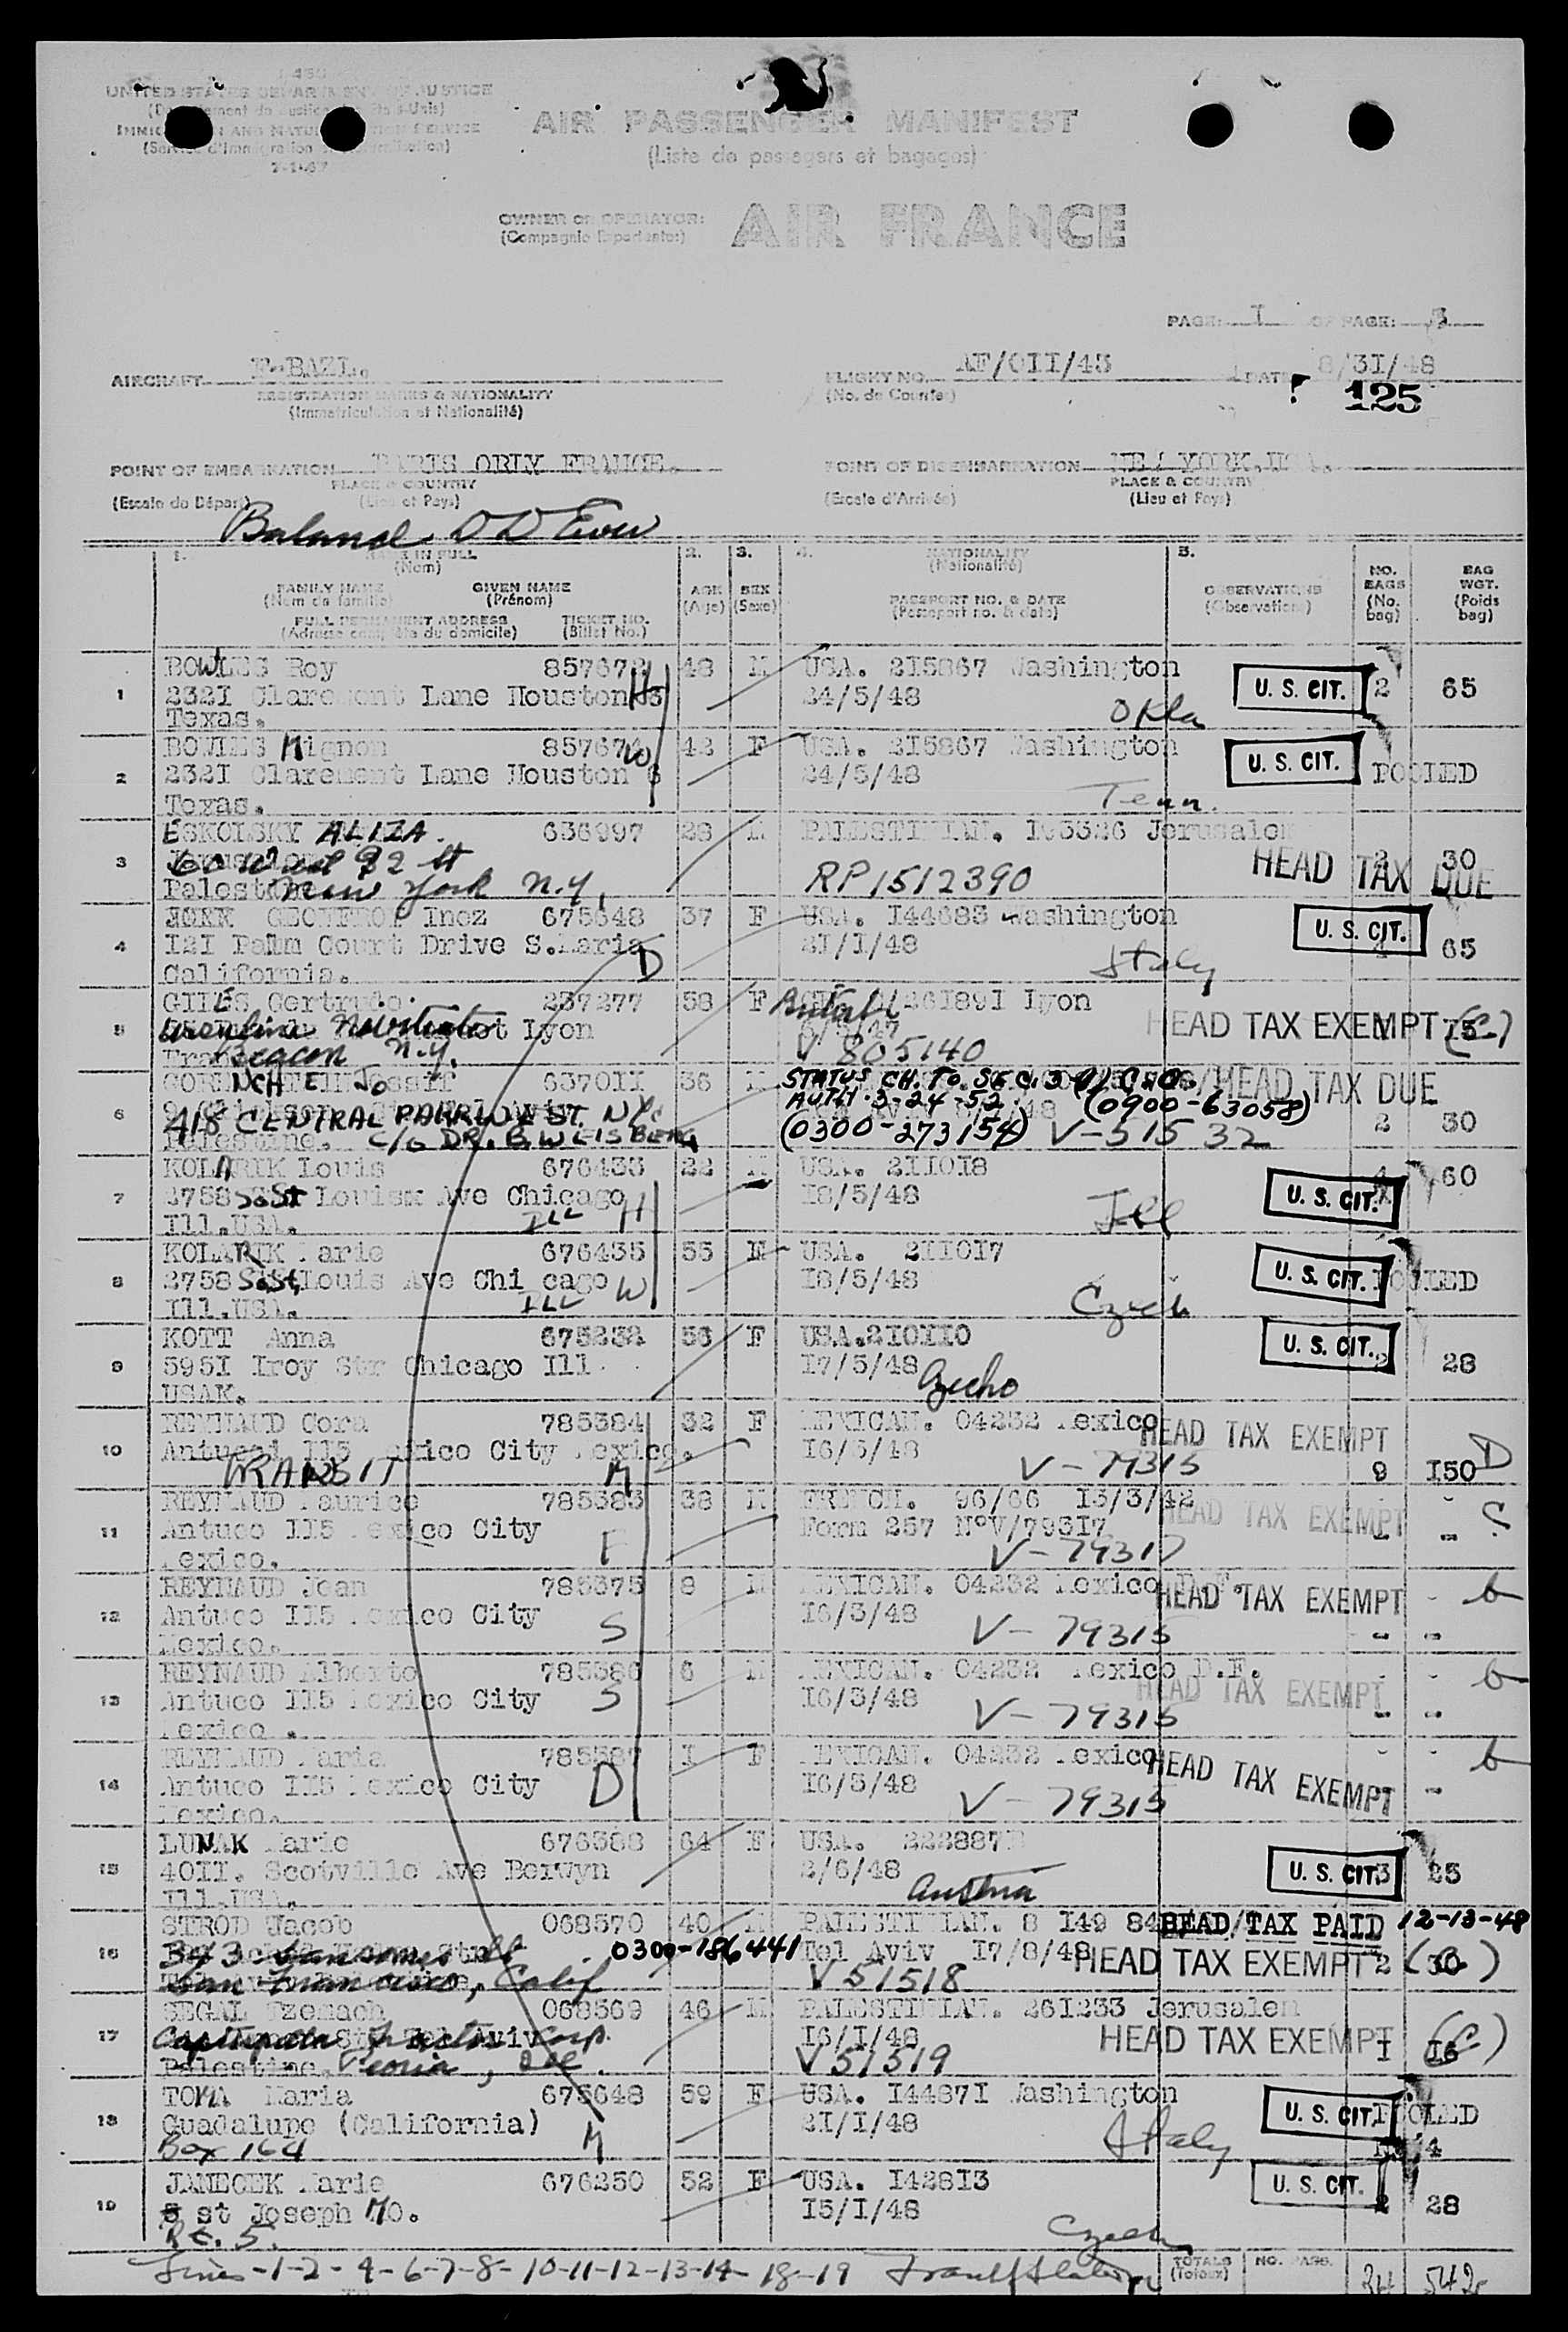 UNITED STATES DEPARTMENT OF JUSTICE
IMMIGRATION AND NATURALIZATION SERVICE
AIR PASSENGER MANIFEST
(Liste de passagers et bagages)
OWNER or OPERATOR:
(Compagnie Exportante:)
AIR FRANCE
PAGE: I OF PAGE: 3
AIRCRAFT F-BAZL.
REGISTRATION MARKS & NATIONALITY
(Immatriculation et Nationalité)
FLIGHT NO. AF/OII/43
(No. de Course)
DATE 8/3I/48
125
POINT OF EMBARKATION PARIS ORLY FRANCE.
PLACE & COUNTRY
(Escale de Départ) (Lieu et Pays)
POINT OF DISEMBARKATION NEW YORK, USA.
PLACE & COUNTRY
(Escale d'Arrivée) (Lieu et Pays)
1. NAME IN FULL
(Nom)
FAMILY NAME GIVEN NAME
(Nom de famille) (Prénom)
FULL PERMANENT ADDRESS TICKET NO.
(Adresse complète du domicile) (Billet No.)
2. AGE (Age)
3. SEX (Sexe)
4. NATIONALITY
(Nationalité)
PASSPORT NO. & DATE
(Passeport no. & date)
5. OBSERVATIONS
(Observations)
NO. BAGS (No. bag)
BAG WGT. (Poids bag)
1 BOWLES Roy 48 M USA. 2I5867 Washington U. S. CIT. 2 65
232I Claremont Lane Houston 24/5/48
Texas. Okla
2 BOWLES Mignon 42 F USA. 2I5867 Washington U. S. CIT. POOLED
232I Claremont Lane Houston 6 24/5/48
Texas. Tenn.
3 ESKOLSKY ALIZA. 636997 28 PALESTINIAN. Jerusalem
HEAD TAX DUE 30
Palestine New York N.Y. RP1512390
4 Inez 675648 37 F USA. I44683 Washington U. S. CIT. 65
I2I Palm Court Drive S.Maria D 2I/I/48
California. Italy
5 GILES Gertrude 237277 58 F 26I89I Lyon
Lyon HEAD TAX EXEMPT (C)
Beacon N.Y. V 805140
6 637OII 36 STATUS CH. TO SEC. 3 HEAD TAX DUE
AUTH. 3-24-52. (0900-63058)
418 CENTRAL PARK WEST. NYC 2 30
Palestine. C/O DR. B. WEISBERG (0300-273154) V-51532
7 KOLARIK Louis 676433 22 M USA. 2IIOI8 60
2758 So St Louis Ave Chicago H I8/5/48 U. S. CIT.
Ill.USA. ILL Ill
8 KOLARIK Marie 676435 55 F USA. 2IIOI7
2758 So St Louis Ave Chi cago W I8/5/48 U. S. CIT. POOLED
Ill.USA. ILL Czech
9 KOTT Anna 56 F USA.2IOIIO U. S. CIT.
595I Troy Str Chicago Ill I7/5/48 28
USA. Czecho
10 REYNAUD Cora 785384 32 F MEXICAN. 04232 Mexico HEAD TAX EXEMPT
Antuco II5 Mexico City Mexico. I6/3/48
TRANSIT M V - 79315 9 I50 D
11 REYNAUD Maurice 785383 38 M FRENCH. 96/66 I3/3/42 HEAD TAX EXEMPT
Antuco II5 Mexico City Form 257 N°V/793I7 - - C
Mexico. F V - 79317
12 REYNAUD Jean 785375 8 M MEXICAN. 04232 Mexico D.F. HEAD TAX EXEMPT b
Antuco II5 Mexico City I6/3/48
Mexico. S V - 79315
13 REYNAUD Alberto 785386 6 M MEXICAN. 04232 Mexico D.F. HEAD TAX EXEMPT b
Antuco II5 Mexico City S I6/3/48
Mexico. V - 79315
14 REYNAUD Maria 785387 I F MEXICAN. 04232 Mexico HEAD TAX EXEMPT b
Antuco II5 Mexico City D I6/3/48
Mexico. V - 79315
15 LUNAK Marie 676388 64 F USA. 222887
40II. Scotville Ave Berwyn 2/6/48 U. S. CIT. 3 25
Ill.USA. Austria
16 STROD Jacob 068570 40 M PALESTINIAN. HEAD TAX PAID 12-13-48
343 Sansome St 0300-186441 Tel Aviv I7/8/48 HEAD TAX EXEMPT 2 30
San Francisco, Calif V 51518
17 SEGAL Tzemach 068569 46 M PALESTINIAN. 26I233 Jerusalem
Tel Aviv Corp. I6/I/48 HEAD TAX EXEMPT I I6 (C)
Palestine. Peoria, Ill. V 51519
18 TOMA Maria 675648 59 F USA. I4487I Washington
Guadalupe (California) 2I/I/48 U. S. CIT. POOLED
Box 164 M Italy
19 JANECEK Marie 676250 52 F USA. I428I3 U. S. CIT.
st Joseph MO. I5/I/48 2 28
Rt. 5. Czech
Lines -1-2-4-6-7-8-10-11-12-13-14-18-19
TOTALS (Totaux) NO. PASS. 34 542